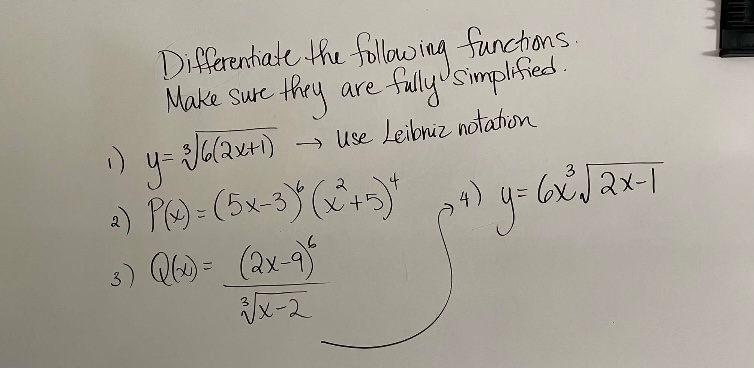 Differentiate the following functions.
Make sure they are fully simplified.
1) y = ∛6(2x+1) → use Leibniz notation
2) P(x) = (5x-3)⁶ (x²+5)⁴
3) Q(x) = (2x-9)⁶ / ∛x-2
4) y = 6x³√2x-1